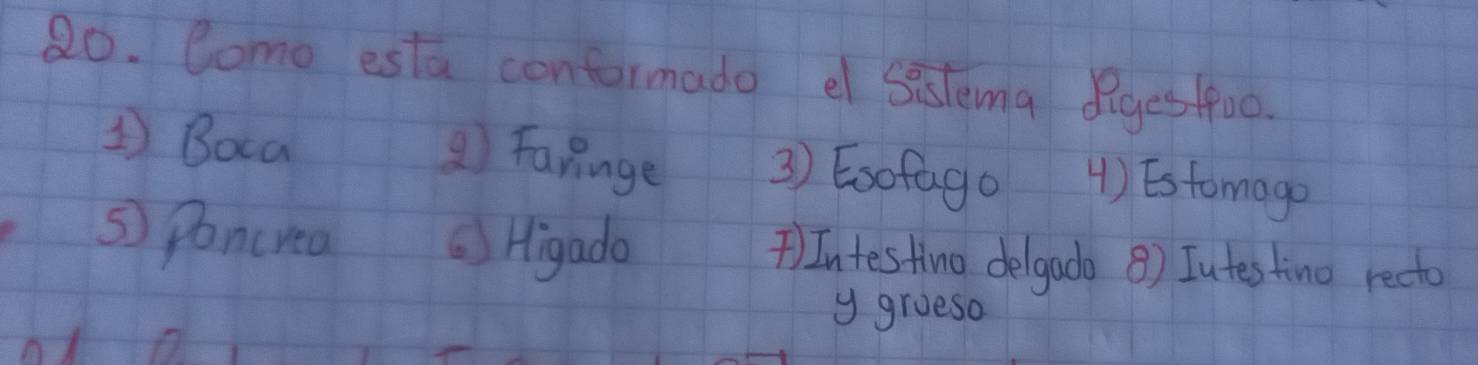 20. Como esta conformado el Sistema digestivo.
1) Boca 2) Faringe 3) Esofago 4) Estomago
5) Pancrea 6) Higado 7) Intestino delgado 8) Intestino recto
y grueso